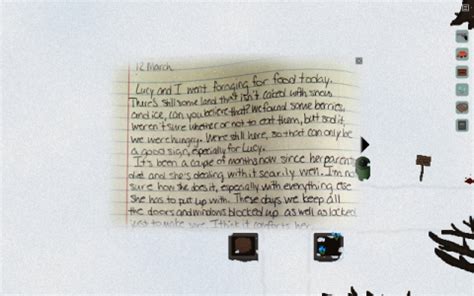 12 March
Lucy and I went foraging for food today.
There's still some land that isn't caked with snow
and ice, can you believe that? We found some berries,
weren't sure whether or not to eat them, but sod it,
we were hungry. We're still here, so that can only be
a good sign, especially for Lucy.
It's been a couple of months now since her parents
died and she's dealing with it scarily well. I'm not
sure how she does it, especially with everything else
she has to put up with. These days we keep all
the doors and windows blocked up as well as locked
just to make sure. I think it comforts her